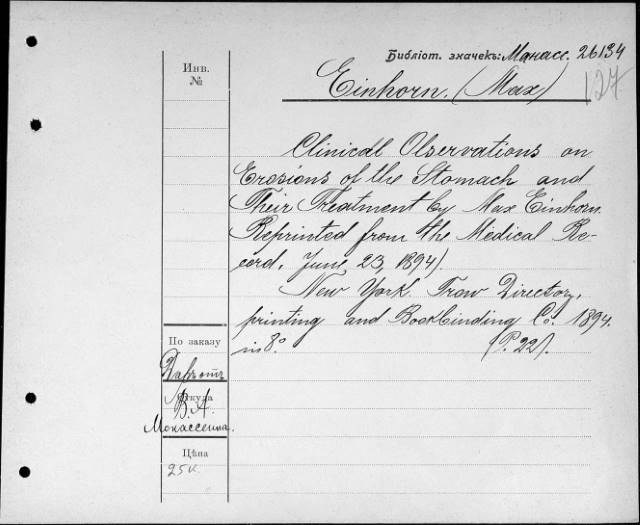 Библіот. значекъ: Манасс. 26134
Инв.
№
Einhorn. (Max)
127
Clinical Observations on
Erosions of the Stomach and
Their Treatment by Max Einhorn.
Reprinted from the Medical Re-
cord, June 23, 1894).
New York. Trow Directory,
printing and Bookbinding Co. 1894.
in 8º. (P. 22).
По заказу
Даръ отъ
Откуда
В. А.
Манассеина.
Цѣна
25 к.